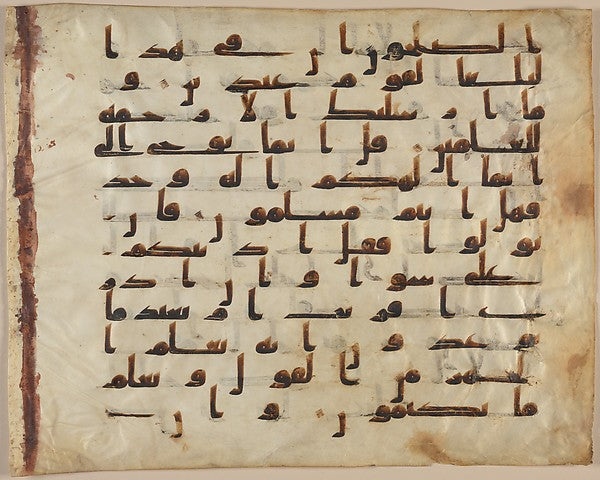 الصلحون ان في هذا
لبلغا لقوم عبدين و
ما ارسلنك الا رحمة
للعلمين قل انما يوحى الي
انما الهكم اله وحد
فهل انتم مسلمون فان
تولوا فقل اذنتكم
على سوا وان ادر
ى اقريب ام بعيد ما
توعدون انه يعلم ا
لجهر من القول ويعلم
ما تكتمون وان